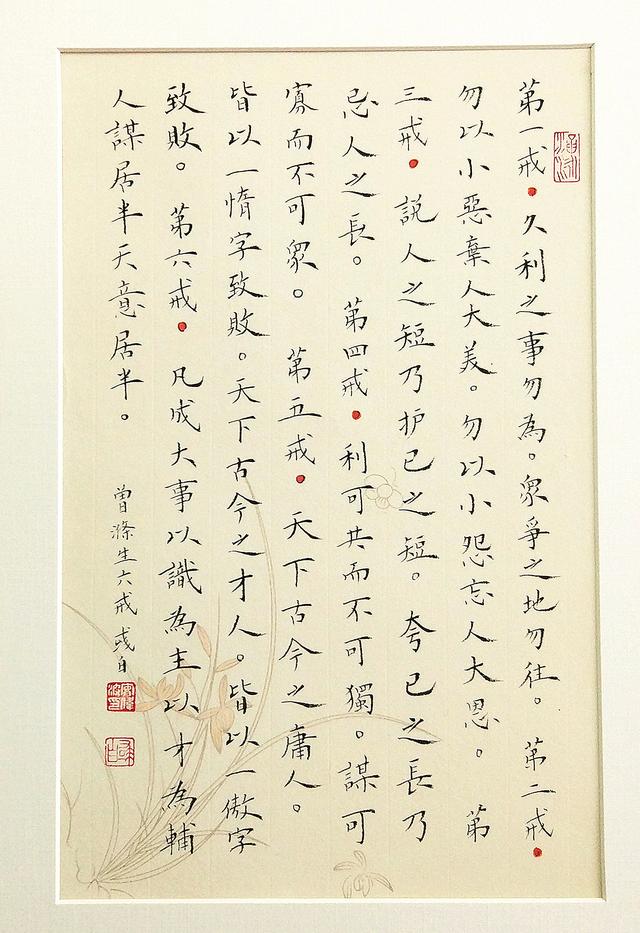 第一戒。久利之事勿為。眾爭之地勿往。第二戒。
勿以小惡棄人大美。勿以小怨忘人大恩。第
三戒。説人之短乃护已之短。夸已之長乃
忌人之長。第四戒。利可共而不可獨。謀可
寡而不可眾。第五戒。天下古今之庸人。
皆以一惰字致敗。天下古今之才人。皆以一傲字
致敗。第六戒。凡成大事以識為主以才為輔
人謀居半天意居半。
曾滌生六戒